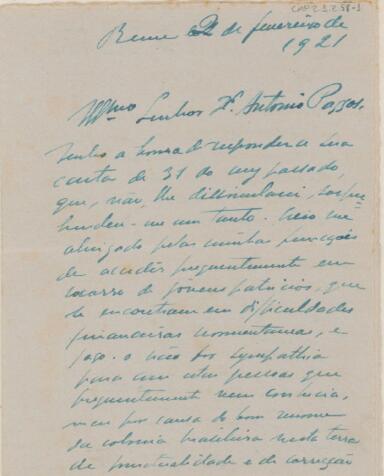 CMP 2.1.2.58-1
Berne 2 de fevereiro de
1921
Illmo Senhor Dr. Antonio Passos.
Tenho a honra de responder a sua
carta de 31 do mez passado,
que, não lhe dissimularei, sorpre-
hendeu-me um tanto. Vejo-me
obrigado pelas minhas funcções
de acudir frequentemente em
soccorro de jovens patricios, que
se encontram em difficuldades
financeiras momentaneas, e
faço-o não por sympathia
para com estas pessoas que
frequentemente nem conhecia,
mas por causa do bom renome
da colonia brasileira nesta terra
de pontualidade e de correção